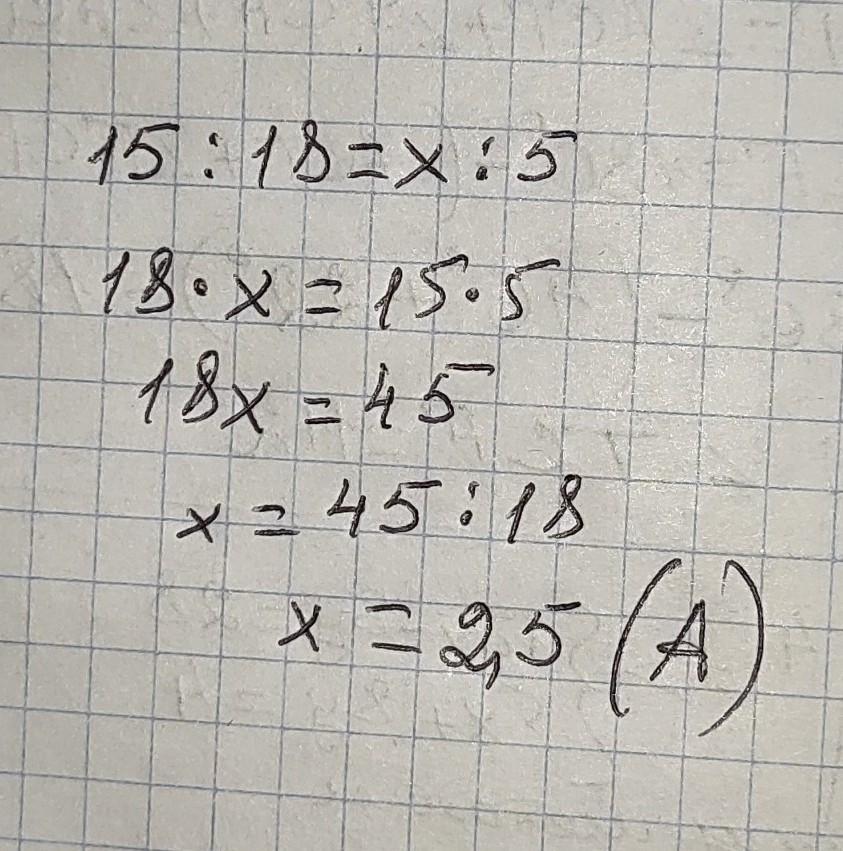 15 : 18 = x : 5
18 · x = 15 · 5
18x = 45
x = 45 : 18
x = 2,5 (A)